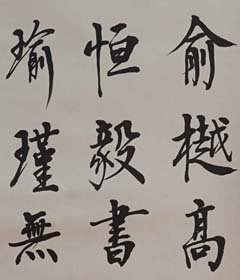 俞樾高
恒毅書
瑜瑾無